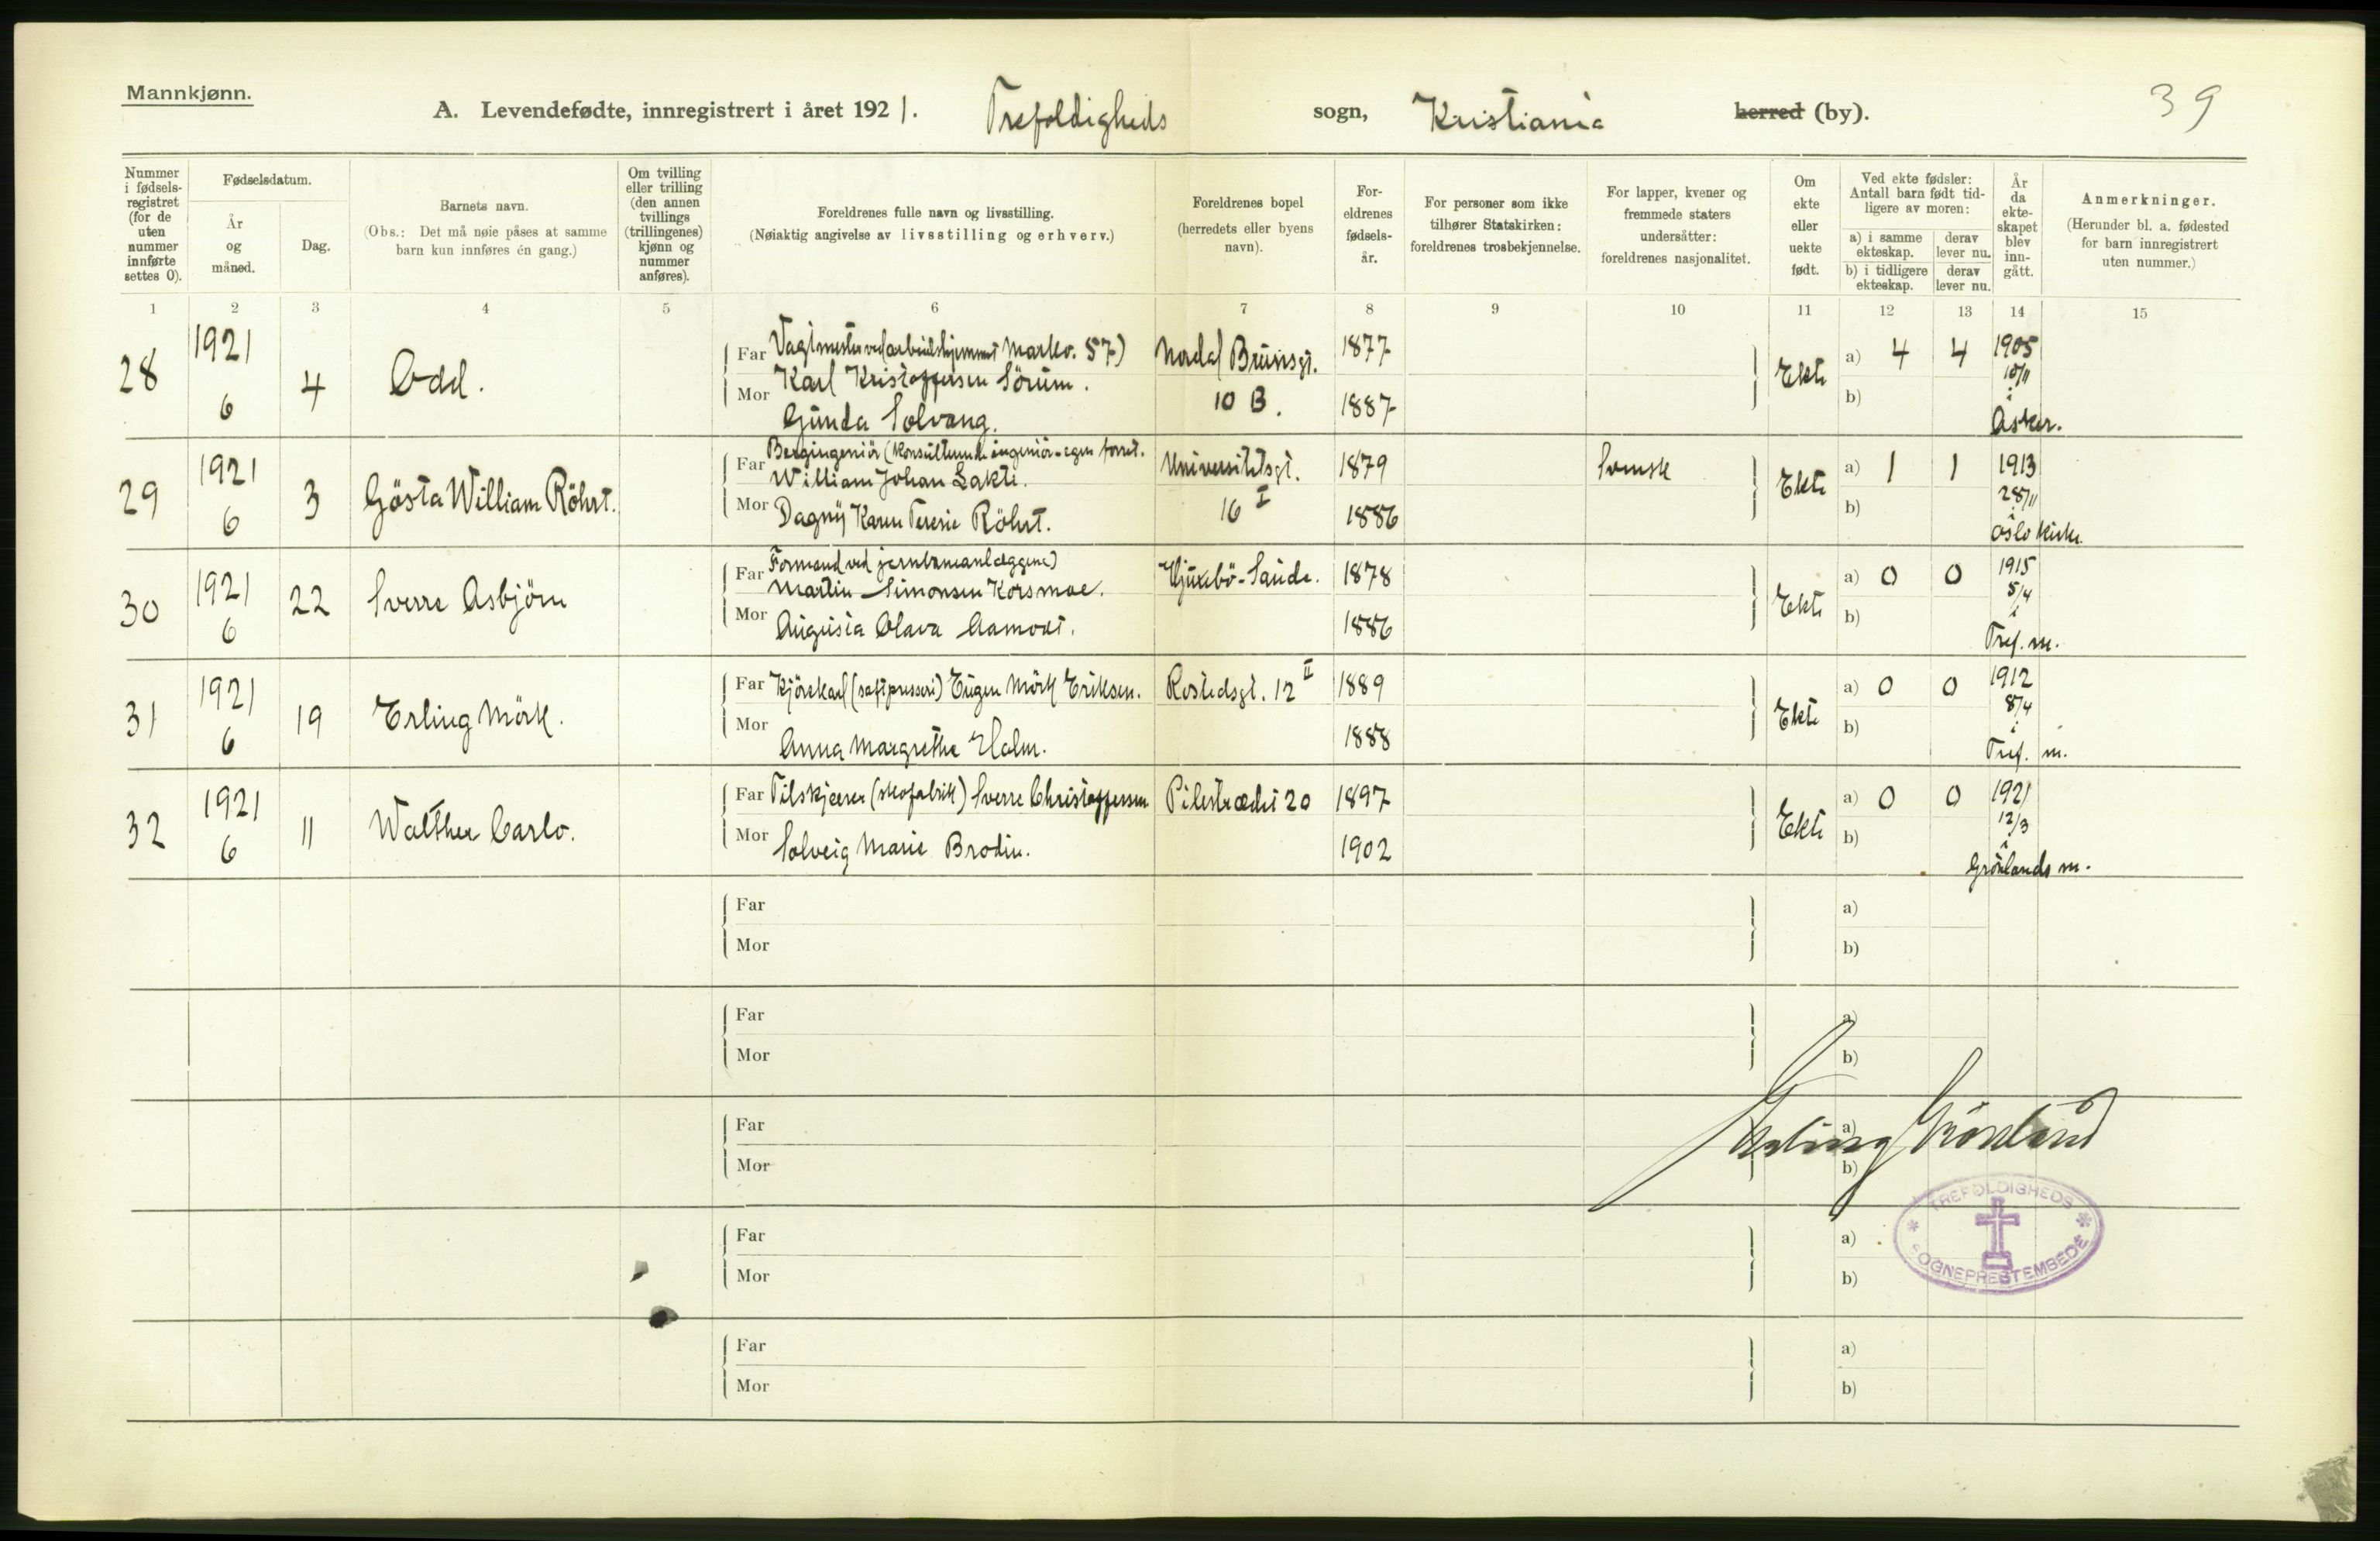 Mannkjønn.
A. Levendefødte, innregistrert i året 1921. Trefoldigheds sogn, Kristiania herred (by). 39
Nummer i fødselsregistret (for de uten nummer innførte settes 0).
Fødselsdatum.
År og måned.
Dag.
Barnets navn.
(Obs.: Det må nøie påses at samme barn kun innføres én gang.)
Om tvilling eller trilling (den annen tvillings (trillingenes) kjønn og nummer anføres).
Foreldrenes fulle navn og livsstilling.
(Nøiaktig angivelse av livsstilling og erhverv.)
Foreldrenes bopel
(herredets eller byens navn).
Foreldrenes fødselsår.
For personer som ikke tilhører Statskirken: foreldrenes trosbekjennelse.
For lapper, kvener og fremmede staters undersåtter: foreldrenes nasjonalitet.
Om ekte eller uekte født.
Ved ekte fødsler: Antall barn født tidligere av moren:
a) i samme ekteskap.
derav lever nu.
b) i tidligere ekteskap.
derav lever nu.
År da ekteskapet blev inngått.
Anmerkninger.
(Herunder bl. a. fødested for barn innregistrert uten nummer.)
1 2 3 4 5 6 7 8 9 10 11 12 13 14 15
28 1921 6 4 Odd.
Far Vagtmester ved arbeidshjemmet Markv. 57)
Karl Kristoffersen Sörum.
Mor Gunda Solvang.
Nordal Brunsgt. 10 B.
1877
1887
Ekte a) 4 4 b)
1905 10/11 i Asker.
29 1921 6 3 Gösta William Röhrt.
Far Bergingeniör (konsulterende ingeniör - egen forret.
William Johan Lakti.
Mor Dagny Karen Teresie Röhrt.
Universitetsgt. 16 I
1879
1886
Svensk
Ekte a) 1 1 b)
1913 28/11 i Oslo kirke
30 1921 6 22 Sverre Asbjörn
Far Formand ved jernbaneanlæggene)
Martin Simonsen Korsmoe.
Mor Augusta Olava Aamodt.
Hjuxebö - Saude.
1878
1886
Ekte a) 0 0 b)
1915 5/4 i Tref. m.
31 1921 6 19 Erling Mörk.
Far Kjörekarl (saftpresseri) Eugen Mörk Eriksen.
Mor Anna Margrethe Holm.
Rostedsgt. 12 II
1889
1888
Ekte a) 0 0 b)
1912 8/4 i Tref. m.
32 1921 6 11 Walther Carlo.
Far Tilskjærer (skofabrik) Sverre Christoffersen
Mor Solveig Marie Brodin.
Pilestrædet 20
1897
1902
Ekte a) 0 0 b)
1921 12/3 i Grönlands m.
Far a)
Mor b)
Far a)
Mor b)
Far a)
Mor b)
Erling Grönland
Far a)
Mor b)
TREFOLDIGHEDS
SOGNEPRESTEMBEDE
Far a)
Mor b)